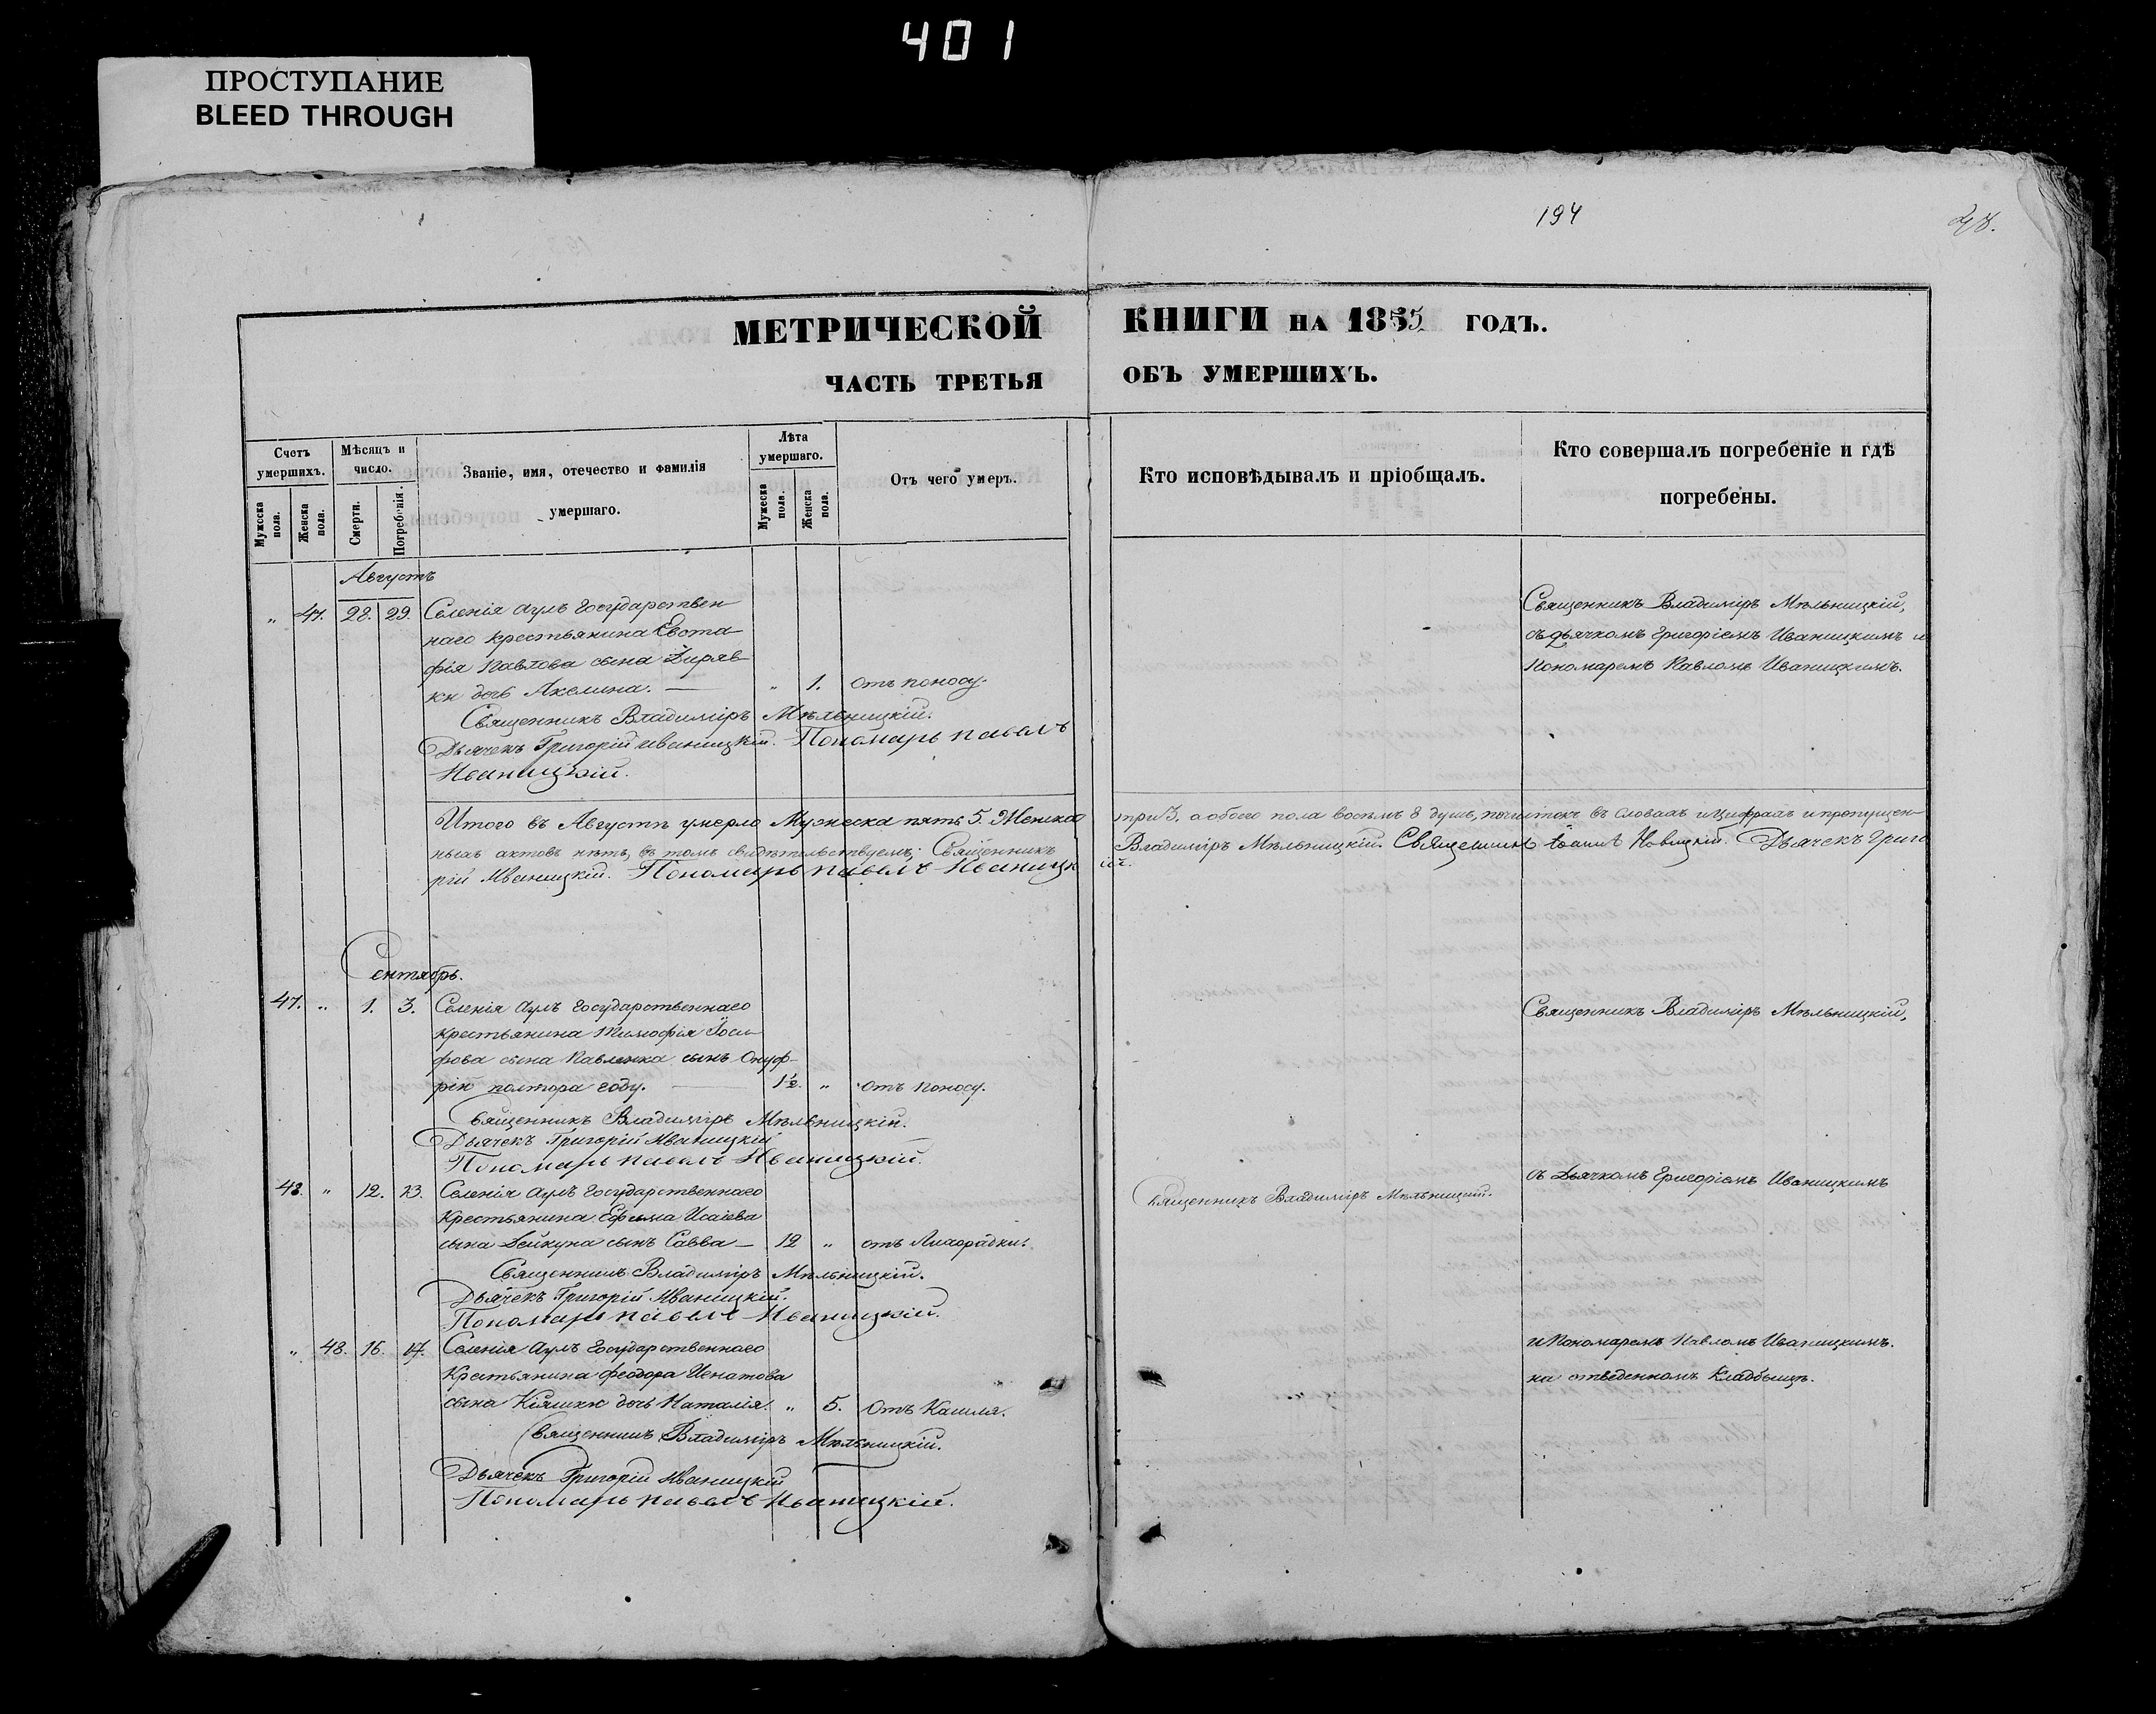 401
ПРОСТУПАНИЕ
BLEED THROUGH
194
МЕТРИЧЕСКОЙ КНИГИ НА 1855 ГОДЪ.
ЧАСТЬ ТРЕТЬЯ ОБЪ УМЕРШИХЪ.
Счетъ умершихъ.
Мужеска пола.
Женска пола.
Мѣсяцъ и число.
Смерти.
Погребенія.
Званіе, имя, отечество и фамилія
умершаго.
Лѣта умершаго.
Мужеска пола.
Женска пола.
Отъ чего умеръ.
Кто исповѣдывалъ и пріобщалъ.
Кто совершалъ погребеніе и гдѣ
погребены.
Августъ
" 47. 28. 29. Селенія Аулъ Государствен
наго крестьянина Евста
фія Павлова сына
дочь Акелина. — " 1. Отъ поносу.
Священникъ Владиміръ Мѣльницкій.
Дьячекъ Григорій Иваницкій. Пономарь Павелъ
Иваницкій.
Священникъ Владиміръ Мѣльницкій,
съ дьячкомъ Григоріемъ Иваницкимъ и
Пономаремъ Павломъ Иваницкимъ.
Итого въ Августѣ умерло Мужеска пять 5. Женска три 3, а обоего пола восемь 8 душъ, почистокъ въ словахъ и цифрахъ и пропущен
ныхъ актовъ нѣтъ, въ томъ свидѣтельствуемъ: Священникъ Владиміръ Мѣльницкій. Священникъ Іоаннъ Новицкій. Дьячекъ Григо
рій Иваницкій. Пономарь Павелъ Иваницкій.
Сентябрь.
47. " 1. 3. Селенія Аулъ Государственнаго
крестьянина Тимофія Іоси
фова сына Павленка сынъ Онуф-
рій полтора году. — 1½. " Отъ поносу.
Священникъ Владиміръ Мѣльницкій.
Дьячекъ Григорій Иваницкій
Пономарь Павелъ Иваницкій.
Священникъ Владиміръ Мѣльницкій,
48. " 12. 13. Селенія Аулъ Государственнаго
Крестьянина Ефима Исаіева
сына сынъ Савва — 12 " отъ Лихорадки.
Священникъ Владиміръ Мѣльницкій.
Дьячекъ Григорій Иваницкій.
Пономарь Павелъ Иваницкій.
Священникъ Владиміръ Мѣльницкій.
съ Дьячкомъ Григоріемъ Иваницкимъ
" 48. 16. 17. Селенія Аулъ Государственнаго
Крестьянина Феодора Игнатова
сына Кіяшки дочь Наталія. " 5. Отъ Кашля.
Священникъ Владиміръ Мѣльницкій.
Дьячекъ Григорій Иваницкій
Пономарь Павелъ Иваницкій.
и Пономаремъ Павломъ Иваницкимъ.
на отведенномъ Кладбищѣ.